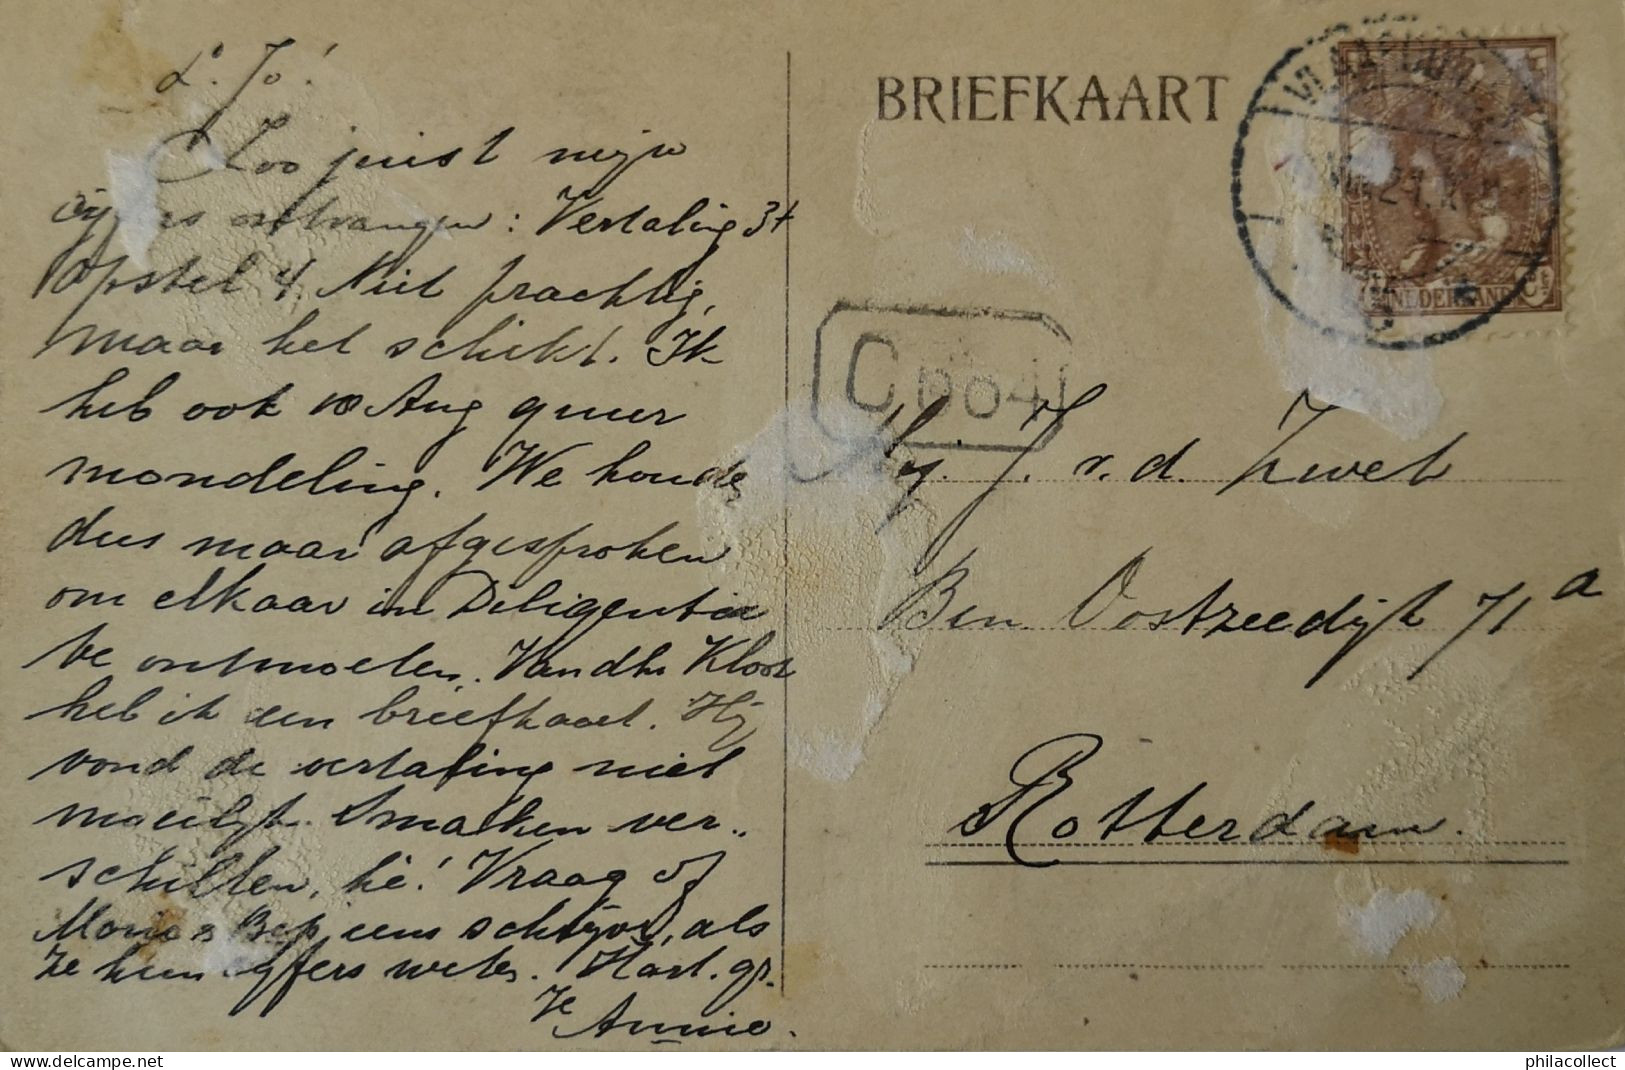 L. Jo!
Zoo juist mijn
cijfers ontvangen: Vertaling 3+
Opstel 4, Niet prachtig,
maar het schikt. Ik
heb ook 10 Aug
mondeling. We houden
dus maar afgesproken
om elkaar in Diligentia
te ontmoeten. Van dhr Kloos
heb ik een briefkaart. Hij
vond de vertaling niet
moeilijk. Smaken ver..
schillen, hè! Vraag of
Marie & Bep eens schrijven, als
ze hun cijfers weten. Hart. gr.
Je
Annie.
BRIEFKAART
NEDERLAND
C 1004
Mej. J. v. d. Zwet
Ben. Oostzeedijk 71a
Rotterdam.
philacollect